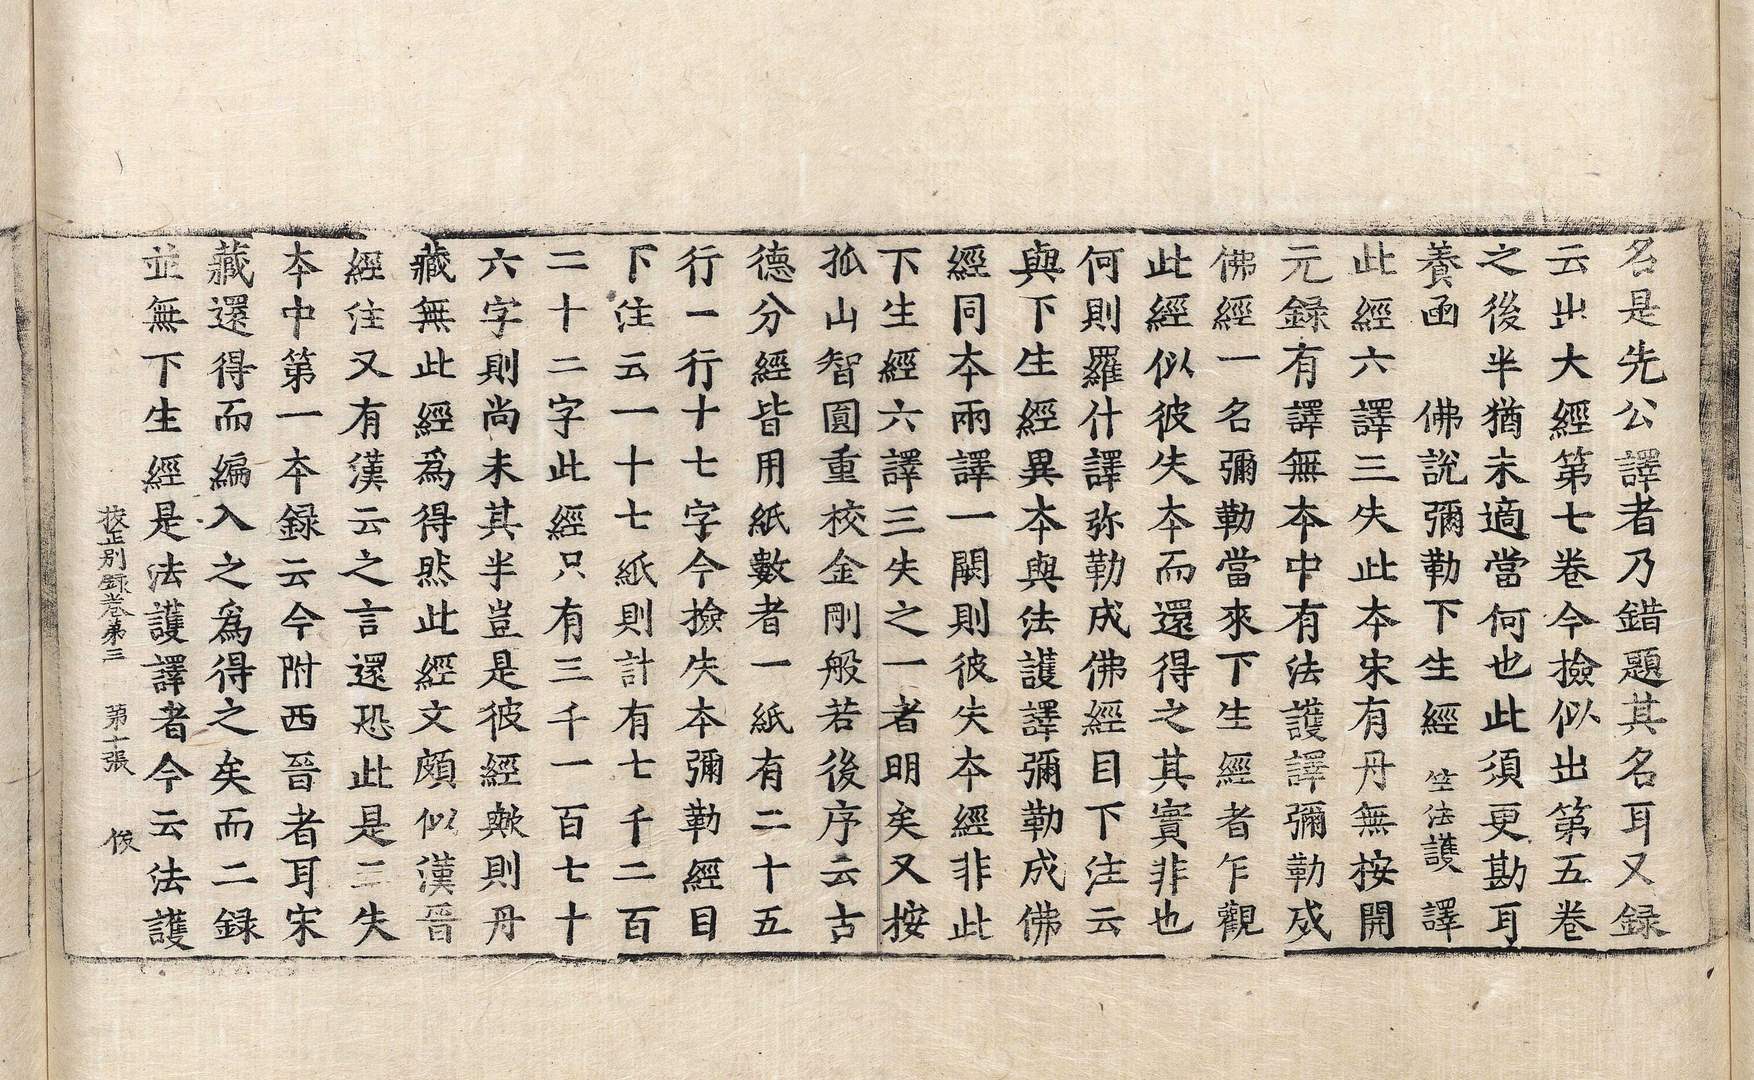 名是先公譯者乃錯題其名耳又録
云出大經第七卷今撿似出第五卷
之後半猶未適當何也此須更勘耳
養函 佛說彌勒下生經 竺法護 譯
此經六譯三失此本宋有丹無按開
元録有譯無本中有法護譯彌勒成
佛經一名彌勒當來下生經者乍觀
此經似彼失本而還得之其實非也
何則羅什譯弥勒成佛經目下注云
與下生經異本與法護譯彌勒成佛
經同本兩譯一闕則彼失本經非此
下生經六譯三失之一者明矣又按
孤山智圓重校金剛般若後序云古
德分經皆用紙數者一紙有二十五
行一行十七字今撿失本彌勒經目
下注云一十七紙則計有七千二百
二十二字此經只有三千一百七十
六字則尚未其半豈是彼經歟則丹
藏無此經爲得然此經文頗似漢晉
經注又有漢云之言還恐此是三失
本中第一本録云今附西晉者耳宋
藏還得而編入之爲得之矣而二録
並無下生經是法護譯者今云法護
校正別録卷第三 第十張 俊